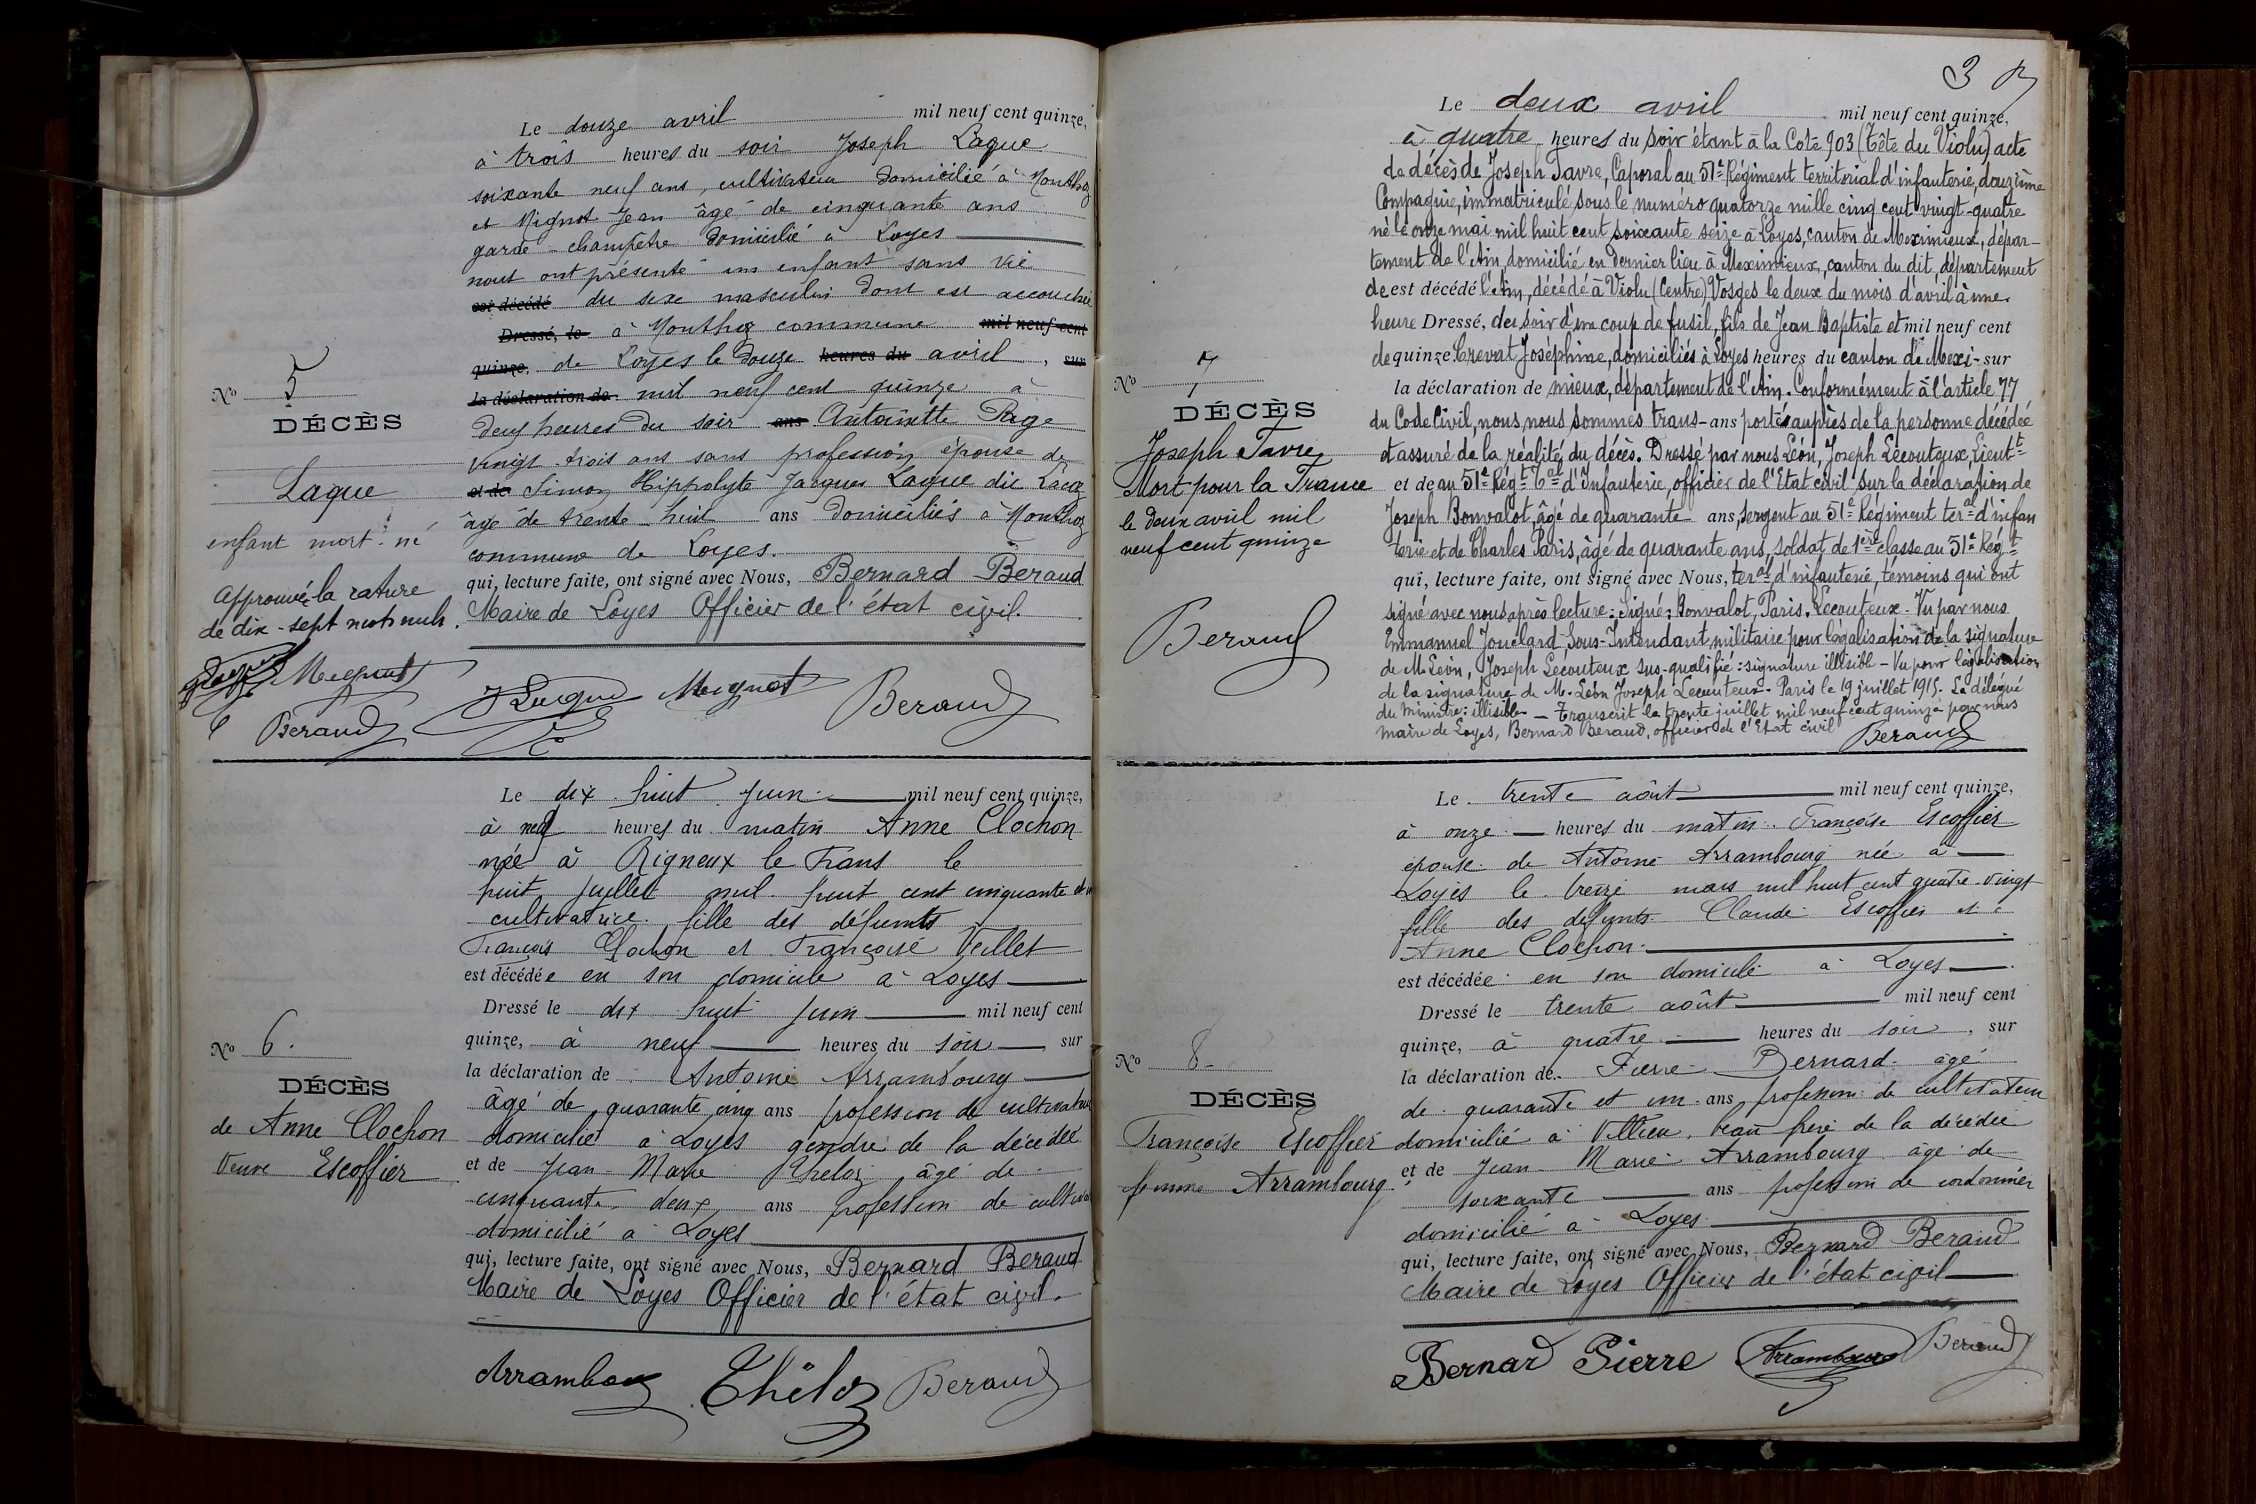 Le douze avril mil neuf cent quinze,
à trois heures du soir Joseph Laque
soixante neuf ans, cultivateur domicilié à Monthoz
et Mignot Jean âgé de cinquante ans
garde-champêtre domicilié à Loyes
nous ont présenté un enfant sans vie
est décédé du sexe masculin dont est accouchée
Dressé, le à Monthoz commune mil neuf cent
quinze, de Loyes le douze heures du avril, sur
la déclaration de mil neuf cent quinze à
deux heures du soir ans Antoinette Page
vingt-trois ans sans profession épouse de
et de Simon Hippolyte Jacques Laque dit
âgé de trente-huit ans domiciliés à Monthoz
commune de Loyes.
qui, lecture faite, ont signé avec Nous, Bernard Beraud
Maire de Loyes Officier de l'état civil.
No 5
DÉCÈS
Laque
enfant mort-né
Approuvé la rature
de dix-sept mots nuls.
Mignot
Beraud
J Laque Mignot Beraud
Le dix-huit juin mil neuf cent quinze,
à neuf heures du matin Anne Clochon
née à Rigneux le Franc le
huit juillet mil huit cent cinquante
cultivatrice fille des défunts
François Clochon et Françoise Veillet
est décédée en son domicile à Loyes
Dressé le dix huit juin mil neuf cent
quinze, à neuf heures du soir, sur
la déclaration de Antoine Arrambourg
âgé de quarante cinq ans profession de cultivateur
domicilié à Loyes gendre de la décédée
et de Jean-Marie Théloz âgé de
cinquante deux ans profession de
domicilié à Loyes
qui, lecture faite, ont signé avec Nous, Bernard Beraud
Maire de Loyes Officier de l'état civil.
No 6.
DÉCÈS
de Anne Clochon
Veuve Escoffier
Arrambourg Théloz Beraud
3
Le deux avril mil neuf cent quinze,
à quatre heures du soir étant à la Cote 903 (Tête du Violu) acte
de décès de Joseph Favre, Caporal au 51e Régiment territorial d'infanterie, douzième
Compagnie, immatriculé sous le numero quatorze mille cinq cent vingt-quatre
né le onze mai mil huit cent soixante seize à Loyes, canton de Meximieux, dépar-
tement de l'Ain domicilié en dernier lieu à Meximieux, canton du dit, département
de est décédé l'Ain, décédé à Violu (Centre) Vosges le deux du mois d'avril à une
heure Dressé, du soir d'un coup de fusil, fils de Jean Baptiste et mil neuf cent
de quinze Crevat Joséphine, domiciliés à Loyes heures du canton de Mexi- sur
la déclaration de mieux, département de l'Ain. Conformément à l'article 77
du Code Civil, nous, nous sommes trans- ans portés auprès de la personne décédée
et assuré de la réalité du décès. Dressé par nous Léon, Joseph Lecouteux, Lieutt
et de au 51e Régt Tal d'Infanterie, officier de l'Etat civil sur la déclaration de
Joseph Bonvalot, âgé de quarante ans, sergent au 51e Régiment teral d'infan
terie et de Charles Paris, âgé de quarante ans, soldat de 1ère classe au 51e Régt
qui, lecture faite, ont signé avec Nous, teral d'infanterie, témoins qui ont
signé avec nous après lecture: Signé: Bonvalot, Paris, Lecouteux. Vu par nous
Emmanuel Jouclard Sous-Intendant militaire pour légalisation de la signature
de M. Léon, Joseph Lecouteux sus-qualifié: signature illisible - Vu pour légalisation
de la signature de M. Léon Joseph Lecouteux. Paris le 19 juillet 1915. Le délégué
du ministre: illisible - Transcrit le trente juillet mil neuf cent quinze par nous
maire de Loyes, Bernard Beraud, officier de l'Etat civil
Beraud
No 7
DÉCÈS
Joseph Favre
Mort pour la France
le deux avril mil
neuf cent quinze
Beraud
Le trente août mil neuf cent quinze,
à onze heures du matin Françoise Escoffier
épouse de Antoine Arrambourg née à
Loyes le treize mars mil huit cent quatre-vingt
fille des défunts Claude Escoffier et
Anne Clochon.
est décédée en son domicile à Loyes
Dressé le trente août mil neuf cent
quinze, à quatre heures du soir, sur
la déclaration de Pierre Bernard âgé
de quarante et un ans profession de cultivateur
domicilié à Villieu, beau frère de la décédée
et de Jean-Marie Arrambourg âgé de
soixante ans profession de cordonnier
domicilié à Loyes
qui, lecture faite, ont signé avec Nous, Bernard Beraud
Maire de Loyes Officier de l'état civil
No 8
DÉCÈS
Françoise Escoffier
femme Arrambourg
Bernard Pierre Arrambourg Beraud